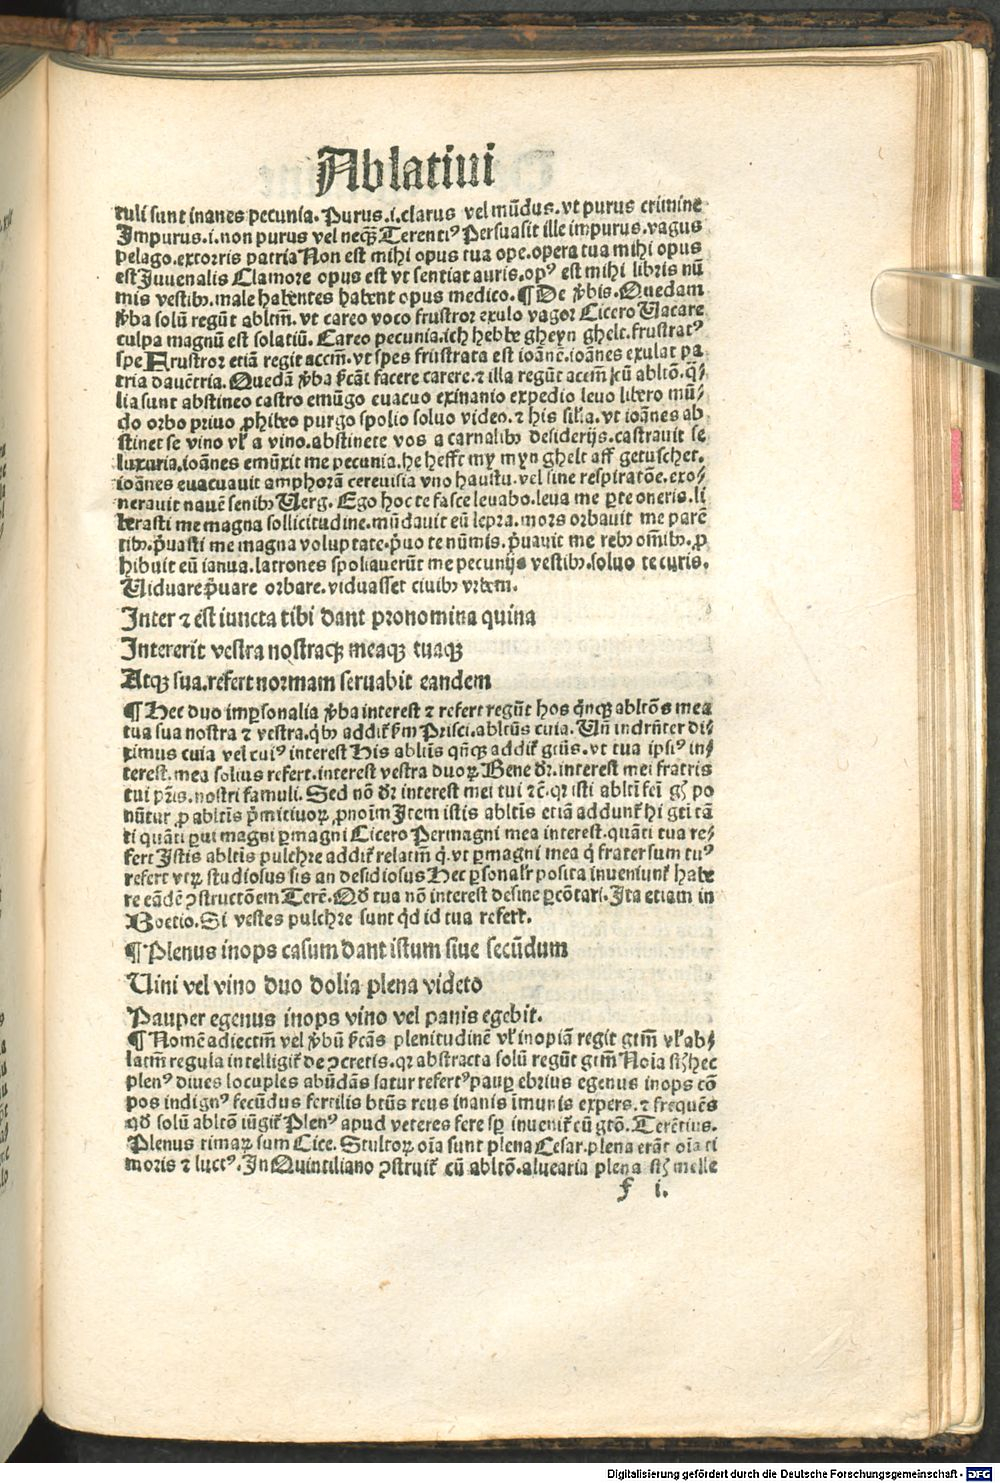 Ablatiui
culi sunt inanes pecunia. Purus .i. clarus vel mūdus. vt purus crimine
Impurus .i. non purus vel neqꝫ Terentiꝰ Persuasit ille impurus. vagus
pelago. extorris patria Non est mihi opus tua ope. opera tua mihi opus
est Juvenalis Clamore opus est vt sentiat auris. opꝰ est mihi libris nū
mis vestibꝫ. male habentes habent opus medico. ¶ De v̄bis. Quedam
v̄ba solū regūt abltm̄. vt careo voco frustror exulo vagor Cicero Vacare
culpa magnū est solatiū. Careo pecunia. ich hebbe gheyn ghelt. frustratꝰ
spe Frustror etiā regit accm̄. vt spes frustrata est ioānē. ioānes exulat pa
tria davētria. Quedā v̄ba s̄cāt facere carere. ⁊ illa regūt accm̄ cū abltō. q̄⸗
lia sunt abstineo castro emūgo euacuo exinanio expedio levo libero mū⸗
do orbo privo ꝓhibeo purgo spolio soluo video. ⁊ his sīlia. vt ioānes ab
stinet se vino vl̄ a vino. abstinete vos a carnalibꝫ desiderijs. castravit se
luxuria. ioānes emūxit me pecunia. he hefft my myn ghelt aff getuschet.
ioānes evacuavit amphorā cerevisia vno haustu. vel sine respiratōe. exo⸗
neravit navē senibꝫ Verg. Ego hoc te fasce levabo. leva me ꝑte oneris. li
berasti me magna sollicitudine. mūdavit eū lepra. mors orbavit me parē
tibꝫ. p̄vasti me magna voluptate. p̄vo te nūmis. p̄vavit me rebꝫ om̄ibꝫ. ꝓ
hibvit eū ianua. latrones spoliauerūt me pecunijs vestibꝫ. solvo te curis.
Viduare p̄vare orbare. viduasset civibꝫ vrbem.
Inter ⁊ est iuncta tibi dant pronomina quina
Intererit vestra nostraqꝫ meaqꝫ tuaqꝫ
Atqꝫ sua. refert normam seruabit eandem
¶ Hec duo imꝑsonalia v̄ba interest ⁊ refert regūt hos q̄nqꝫ abltōs mea
tua sua nostra ⁊ vestra. q̄bꝫ addit̄ s̄m Prisci. abltūs cuia. Vn̄ indrn̄ter di⸗
ximus cuia vel cuiꝰ interest His abltīs qn̄qꝫ addit̄ gtūs. vt tua ipsiꝰ in⸗
terest. mea solius refert. interest vestra duoꝝ Bene dr̄. interest mei fratris
tui pr̄is. nostri famuli. Sed nō dr̄ interest mei tui ⁊c̄. qꝛ isti abltī fe͞i gꝭ po
nūtur ꝓ abltīs p̄mitiuoꝝ ꝓnoīm Item istis abltīs etiā addunt̄ hi gtī tā
ti quāti ꝑui magni ꝑmagni Cicero Permagni mea interest. quāti tua re⸗
fert Istis abltīs pulchre addit̄ relatm̄ q̄. vt ꝑmagni mea q̄ frater sum tuꝰ
refert vtꝝ studiosus sis an desidiosus Hec ꝑsonalr̄ posita inveniunt̄ habe
re eādē ꝯstructōem Terē. Qd̄ tua nō interest desine ꝑcōtari. Ita etiam in
Boetio. Si vestes pulchre sunt qd̄ id tua refert.
¶ Plenus inops casum dant istum siue secūdum
Vini vel vino duo dolia plena videto
Pauper egenus inops vino vel panis egebit.
¶ Nomē adiectm̄ vel v̄bū s̄cās plenitudinē vl̄ inopiā regit gtm̄ vl̄ ab⸗
latm̄ regula intelligit̄ de ꝯcretis. qꝛ abstracta solū regūt gtm̄ Noīa sꝫ hec
plenꝰ diues locuples abūdās satur refertꝰ pauꝑ ebrius egenus inops cō
pos indignꝰ fecūdus fertilis btūs reus inanis īmunis expers. ⁊ frequēs
qd̄ solū abltō iūgit̄ Plenꝰ apud veteres fere sꝑ invenit̄ cū gtō. Terētius.
Plenus rimaꝝ sum Cice. Stultoꝝ oīa sunt plena Cesar. plena erāt oīa ti
moris ⁊ luctꝰ. In Quintiliano ꝯstruit̄ cū abltō. aluearia plena sꝫ melle
f i.
Digitalisierung gefördert durch die Deutsche Forschungsgemeinschaft - DFG